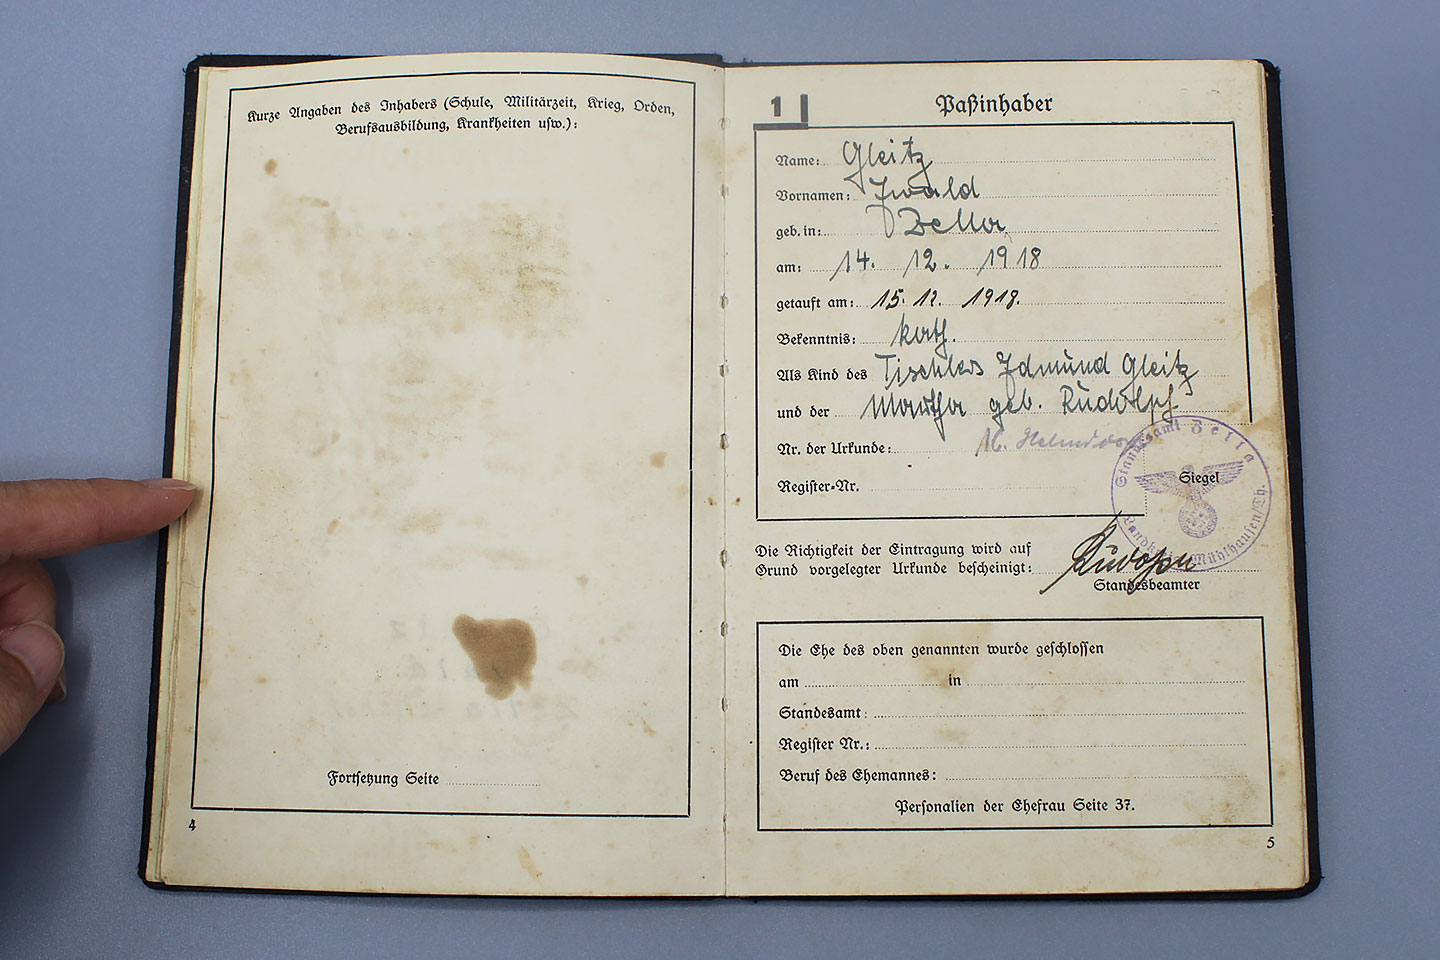 Kurze Angaben des Inhabers (Schule, Militärzeit, Krieg, Orden,
Berufsausbildung, Krankheiten usw.):
Fortsetzung Seite
4
1
Paßinhaber
Name: Gleitz
Vornamen: Ewald
geb. in: Zella
am: 14. 12. 1918
getauft am: 15. 12. 1918.
Bekenntnis: kath.
Als Kind des Tischlers Edmund Gleitz
und der Martha geb. Rudolph
Nr. der Urkunde:
Register-Nr.
Standesamt Zella
Siegel
Landkreis Mühlhausen/Th.
Die Richtigkeit der Eintragung wird auf
Grund vorgelegter Urkunde bescheinigt:
Standesbeamter
Die Ehe des oben genannten wurde geschlossen
am in
Standesamt:
Register Nr.:
Beruf des Ehemannes:
Personalien der Ehefrau Seite 37.
5